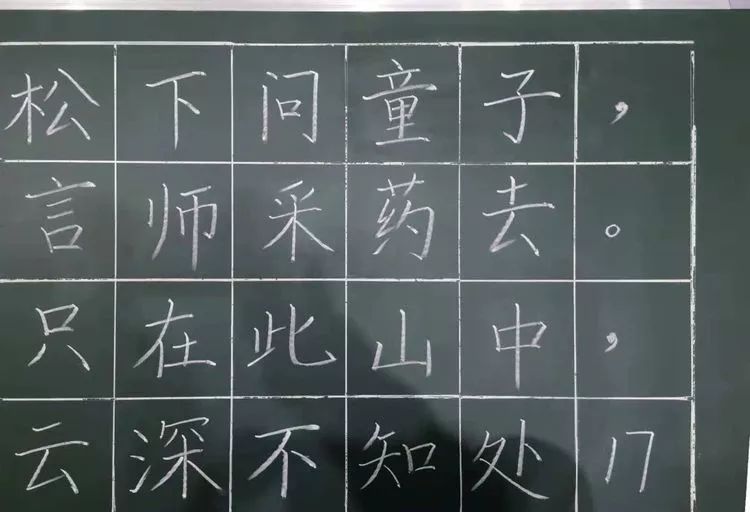 松下问童子，
言师采药去。
只在此山中，
云深不知处17